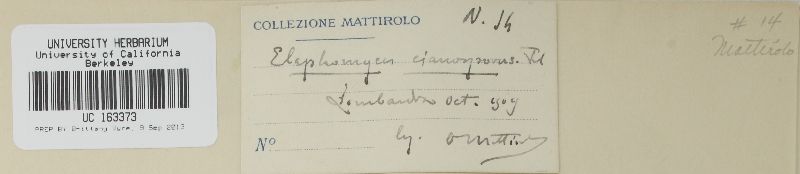 UNIVERSITY HERBARIUM
University of California
Berkeley
UC 163373
PREP BY Brittany Dure, 9 Sep 2013
COLLEZIONE MATTIROLO
N. 14
Elaphomyces cianosporus. Tul
Lombardia Oct. 909
Nº
leg. O Mattirolo
# 14
Mattirolo